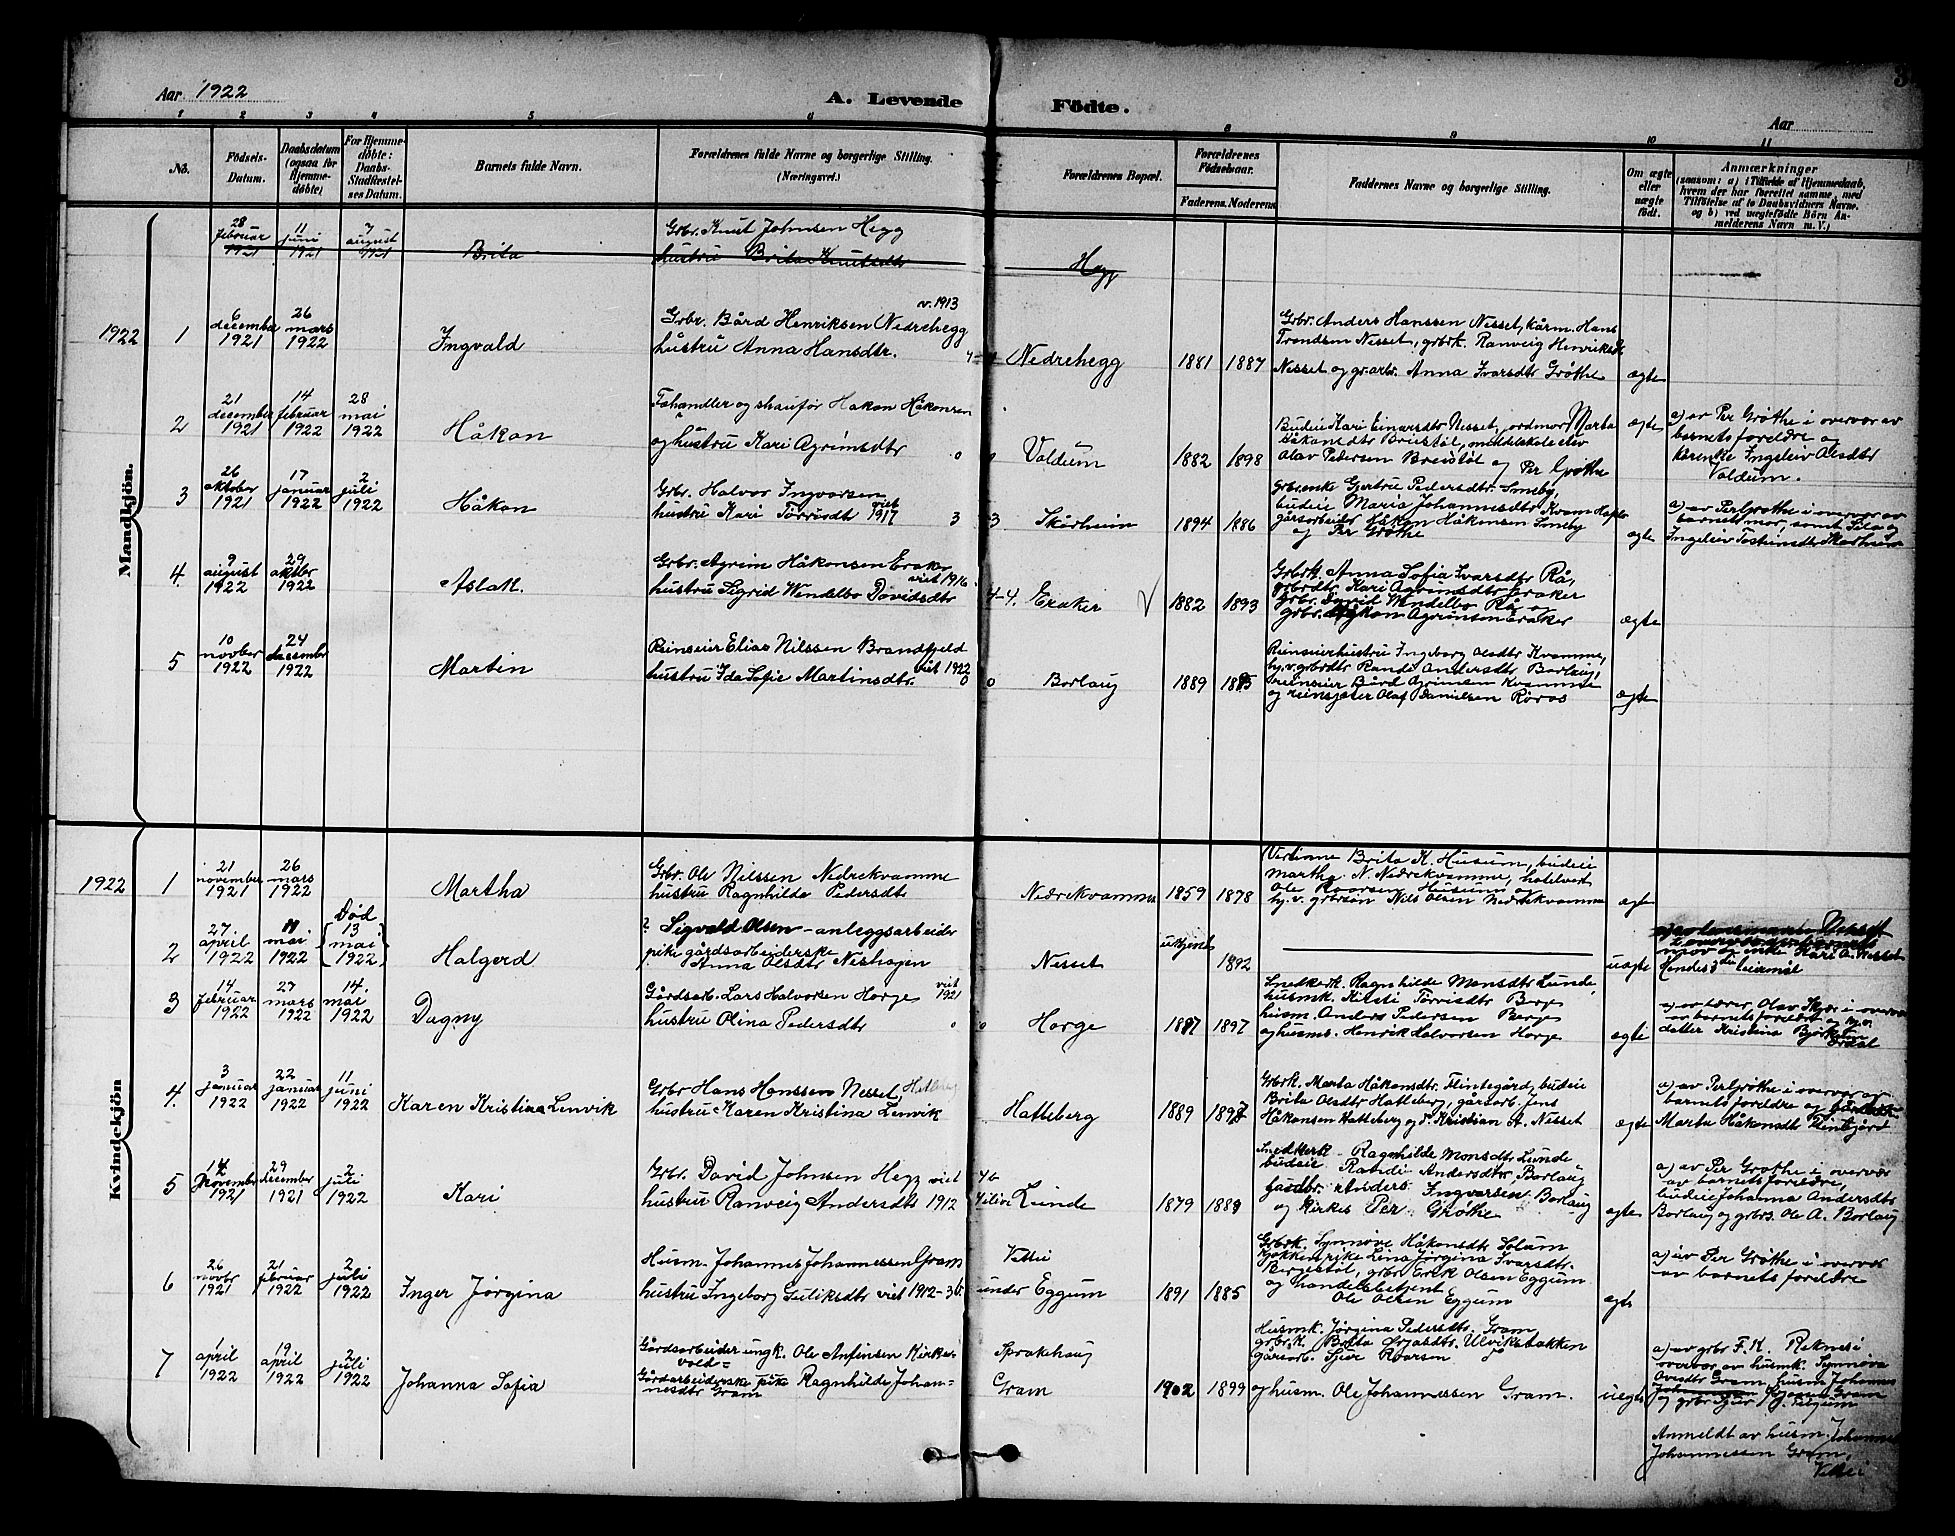 Aar 1922
A. Levende Fødte.
Aar
1 2 3 4 5 6 8 9 10 11
No.
Fødsels-Datum.
Daabsdatum (ogsaa for Hjemmedøbte)
For Hjemmedøbte: Daabs-Stadfæstelses Datum.
Barnets fulde Navn.
Forældrenes fulde Navne og borgerlige Stilling. (Næringsvei.)
Forældrenes Bopæl.
Forældrenes Fødselsaar.
Faderens. Moderens.
Faddernes Navne og borgerlige Stilling.
Om ægte eller uægte født.
Anmærkninger
(saasom: a) i Tilfælde af Hjemmedaab, hvem der har forrettet samme, med Tilføielse af to Daabsvidners Navne. og b) ved uægtefødte Børn Anmelderens Navn m. V.)
Mandkjøn.
28 februar 1921
11 juni 1921
7 august 1921
Brita
Grbr. Knut Johnsen Hegg
hustru Brita Knutsdtr
Hegg
1922
1
6 december 1921
26 mars 1922
Ingvald
v. 1913
Grbr. Bård Henriksen Nedrehegg
hustru Anna Hansdtr.
Nedrehegg
1881 1887
Grbr. Anders Hanssen Nesset, kårm. Hans
Trondsen Nesset, grbrk. Ranveig Henriksdtr
Nesset og grarb. Anna Ivarsdtr Grøthe
ægte
2
21 december 1921
14 februar 1922
28 mai 1922
Håkon
Fehandler og shaufør Håkon Håkonsen
og hustru Kari Agrimsdtr
0
Voldum
1882 1898
Budeie Kari Einarsdtr Nesset, ordmor Marta
Håkansdtr Breistøl, middelskole elev
Olav Pedersen Breistøl og Per Grøthe
ægte
a) av Per Grøthe i overvær av
barnets foreldre og
kårenke Ingeleiv Olsdtr
Voldum.
3
26 oktober 1921
17 januar 1922
2 juli 1922
Håkon
Grbr. Halvor Ingvarsen
hustru Kari Torrisdtr viet 1917
3
3
Skårheim
1894 1886
Grbr.enke Gertru Pedersdtr. Smeby,
budeie Maria Johannesdtr Kvam
gårsarbeider Håkon Håkonsen Smeby
og Per Grøthe
ægte
a) av Per Grøthe i overvær av
barnets mor, samt
Ingeleiv Skårheim
4.
9 august 1922
29 oktbr 1922
Aslak.
Grbr. Agrim Håkonsen Eraker
viet 1916
hustru Sigrid Wendelbo Davidsdtr
4-4.
Eraker
1882 1893
Grbrk. Anna Sofia Ivarsdtr Rå,
grbrdtr Kari Agrimsdtr Eraker
grbr. David Wendelbo Rå og
grbr. Håkon Agrimson Eraker
ægte
5
10 novber 1922
24 desember 1922
Martin
Reinseier Elias Nilssen Brandfjeld
hustru Ida Sofie Martinsdtr. viet 1922
0
0
Borlaug
1889 1885
Reinseierhustru Ingeborg Olsdtr Kvamme,
hj.v. grbrdtr Randi Andersdtr Borlaug,
reinseier Bård Agrimsen Kvamme
og reinsgjeter Olaf Danielsen Røros
ægte
Kvindekjøn
1922
1
21 november 1921
26 mars 1922
Martha
Grbr. Ole Nilssen Nedrekvamme
hustru Ragnhilda Pedersdtr
Nedrekvamme
1859 1878
Vertinne Brita K. Husum, budeie
Martha N. Nedrekvamme, hotelvert
Ole Roarsen Husum og
hj. v. grbrsøn Nils Olsen Nedrekvamme
ægte
2
27. april 1922
11 mai 1922
Død 13 mai 1922
Halgerd
? Sigvald Olsen - anleggsarbeider
pike gårdsarbeiderske
Anna Olsdtr Neshagen
Nesset
ukjent
1892
uægte
mor og enke Kari A. Nesset
Hendes 3die leiermål
3
14 februar 1922
27 mars 1922
14. mai 1922
Dagny
Gårdsarb. Lars Halvorsen Horge viet 1921
hustru Olina Pedersdtr
0
0
Horge
1887 1897
Snedkerk. Ragnhilde Monsdtr Lunde,
husmk. Kitsti Torrisdtr Berge
husm. Anders Pedersen Berge
og husms. Henrik Halvorsen Horge
ægte
a) av lærer Olav Skjær i overvær
av barnets foreldre og hj.v.
datter Kristina Bjørkum
4.
3 januar 1922
22 januar 1922
11 juni 1922
Karen Kristina Lenvik
Grbr Hans Hanssen Nesset, Hatleberg
hustru Karen Kristina Lenvik
Hatteberg
1889 1897
Grbrk. Marta Håkonsdtr. Flintegård, budeie
Brita Olsdtr Hatteberg, gårsarb. Jens
Håkonsen Hatteberg og T. Kristian H. Nesset
ægte
a) av Per Grøthe i overvær av
barnets foreldre og
Marta Håkonsdtr Flintegård
5
14 november 1921
29 desember 1921
2 juli 1922
Kari
Grbr. David Johnsen Hegg viet
hustru Ranveig Andersdtr 1912
4 b
4 i live
Lunde
1879 1889
Snedkerk. Ragnhilde Monsdtr Lunde
budeie Randi Andersdtr Borlaug
Anders Ingvarsen Borlaug
og kirkes. Per Grøthe
ægte
a) av Per Grøthe i overvær
av barnets foreldre,
budeie Johanna Andersdtr
Borlaug og grbrs. Ole A. Borlaug
6
26 novbr 1921
21 februar 1922
2 juli 1922
Inger Jørgina
Husm. Johannes Johannessen Gram
hustru Ingeborg Guliksdtr viet 1912-3 b.
Vettei
under Eggum
1891 1885
Grbrk. Synnøve Håkonsdtr Solum
kjøkkenpike Lina Jørgina Ivarsdtr.
Bergestøl, grbr Erik Olsen Eggum
og handelsbetjent
Ole Olsen Eggum
ægte
a) av Per Grøthe i overvær
av barnets foreldre
7
1 april 1922
19 april 1922
2 juli 1922
Johanna Sofia
Gårdsarbeider ungk. Ole Anfinsen Kirkevold-
Gårdarbeiderske pike Ragnhilde Johannesdtr Gram
Sprakehaug
Gram
1902 1899
Husmk. Jørgina Pedersdtr. Gram
grbr.k. Brita Ulviksbakken
gårsarb. Sjur Roarson
og husm. Ole Johannessen Gram.
uegte
a) av grbr F. K. Reknes i
overvær av husmk. Synnøva
Gram, husm Johannes
Anmeldt av husm. Johannes
Johannessen Gram,
Vettei